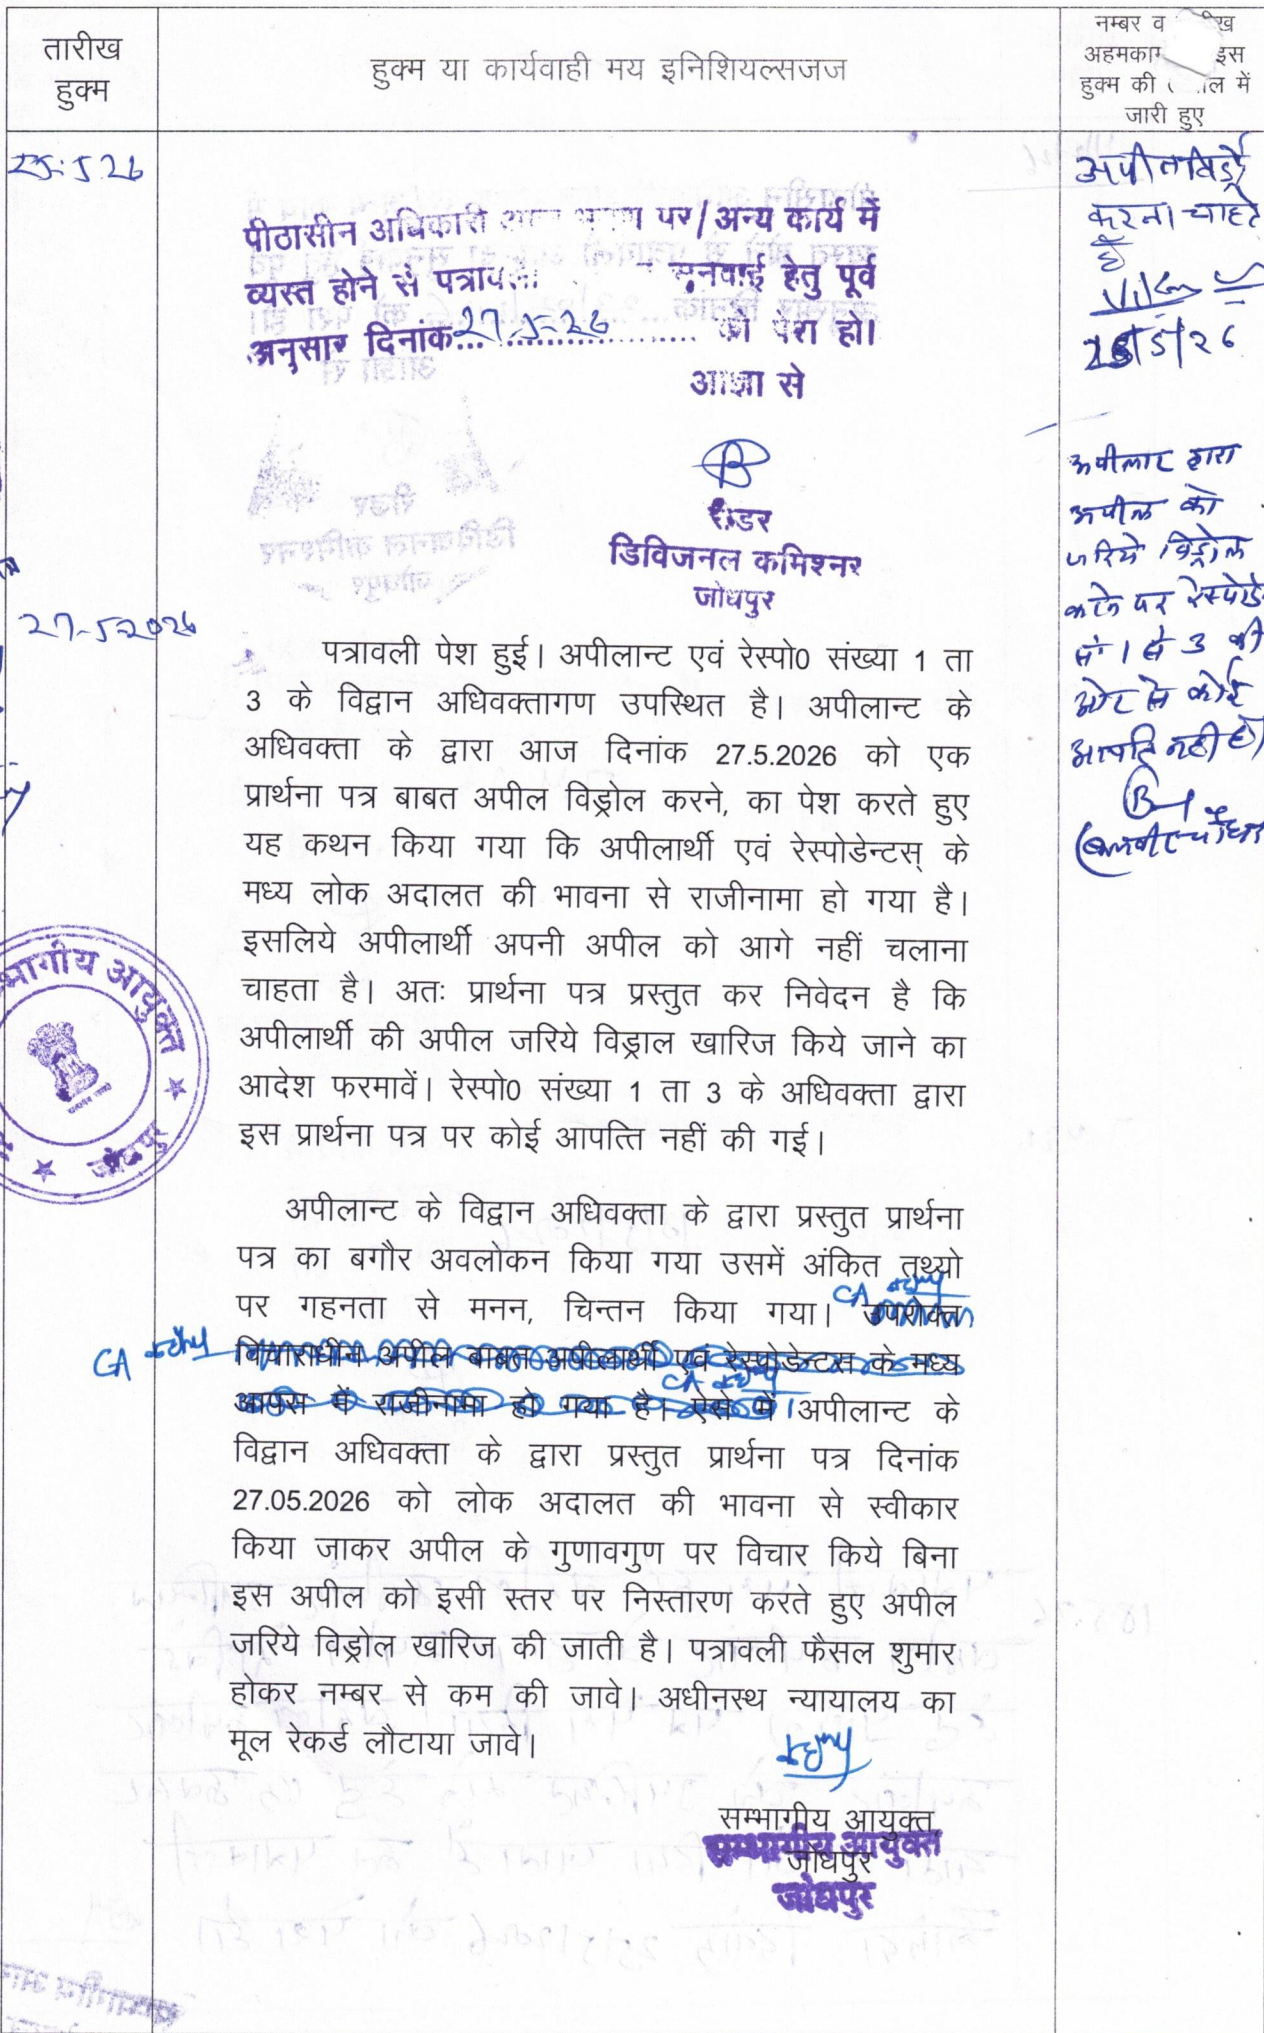 तारीख
हुक्म
हुक्म या कार्यवाही मय इनिशियल्सजज
नम्बर व
अहमकाम इस
हुक्म की में
जारी हुए
25.5.26
पीठासीन अधिकारी पर/अन्य कार्य में
व्यस्त होने से पत्रावली सुनवाई हेतु पूर्व
अनुसार दिनांक...27.5.26... को पेश हो।
आज्ञा से
रीडर
डिविजनल कमिश्नर
जोधपुर
अपील विड्रो
करना चाहते
है
25/5/26
अपीलांट द्वारा
अपील को
जरिये विड्रोल
करने पर रेस्पोडे
सं 1 से 3 की
ओर से कोई
आपत्ति नहीं है।
27-5-2026
पत्रावली पेश हुई। अपीलान्ट एवं रेस्पो0 संख्या 1 ता
3 के विद्वान अधिवक्तागण उपस्थित है। अपीलान्ट के
अधिवक्ता के द्वारा आज दिनांक 27.5.2026 को एक
प्रार्थना पत्र बाबत अपील विड्रोल करने, का पेश करते हुए
यह कथन किया गया कि अपीलार्थी एवं रेस्पोडेन्टस् के
मध्य लोक अदालत की भावना से राजीनामा हो गया है।
इसलिये अपीलार्थी अपनी अपील को आगे नहीं चलाना
चाहता है। अतः प्रार्थना पत्र प्रस्तुत कर निवेदन है कि
अपीलार्थी की अपील जरिये विड्राल खारिज किये जाने का
आदेश फरमावें। रेस्पो0 संख्या 1 ता 3 के अधिवक्ता द्वारा
इस प्रार्थना पत्र पर कोई आपत्ति नहीं की गई।
भागीय आयुक्त
जोधपुर
अपीलान्ट के विद्वान अधिवक्ता के द्वारा प्रस्तुत प्रार्थना
पत्र का बगौर अवलोकन किया गया उसमें अंकित तथ्यो
पर गहनता से मनन, चिन्तन किया गया। CA उपरोक्त
CA विचाराधीन अपील बाबत अपीलार्थी एवं रेस्पोडेन्टस के मध्य
आपस में राजीनामा हो गया है। CA ऐसे में अपीलान्ट के
विद्वान अधिवक्ता के द्वारा प्रस्तुत प्रार्थना पत्र दिनांक
27.05.2026 को लोक अदालत की भावना से स्वीकार
किया जाकर अपील के गुणावगुण पर विचार किये बिना
इस अपील को इसी स्तर पर निस्तारण करते हुए अपील
जरिये विड्रोल खारिज की जाती है। पत्रावली फैसल शुमार
होकर नम्बर से कम की जावे। अधीनस्थ न्यायालय का
मूल रेकर्ड लौटाया जावे।
सम्भागीय आयुक्त
सम्भागीय आयुक्त
जोधपुर
जोधपुर